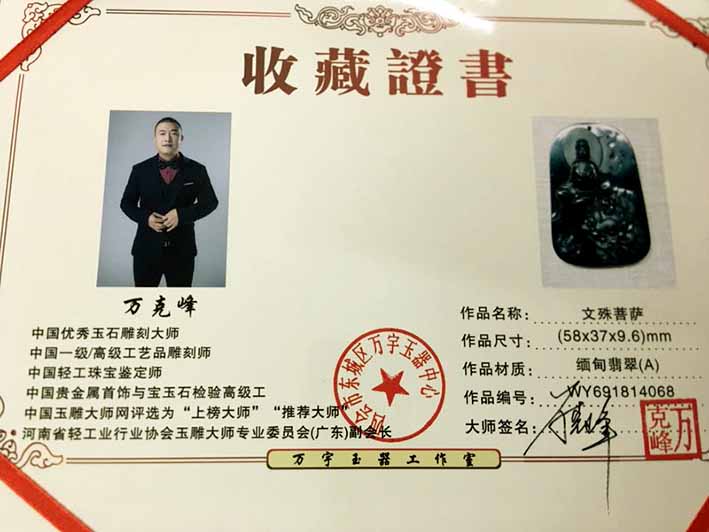 收藏證書
万克峰
中国优秀玉石雕刻大师
中国一级/高级工艺品雕刻师
中国轻工珠宝鉴定师
中国贵金属首饰与宝玉石检验高级工
中国玉雕大师网评选为“上榜大师”“推荐大师”
河南省轻工业行业协会玉雕大师专业委员会(广东)副会长
四会市东城区万宇玉器中心
作品名称: 文殊菩萨
作品尺寸: (58x37x9.6)mm
作品材质: 缅甸翡翠(A)
作品编号: WY691814068
大师签名: 万克峰
万克峰
万宇玉器工作室